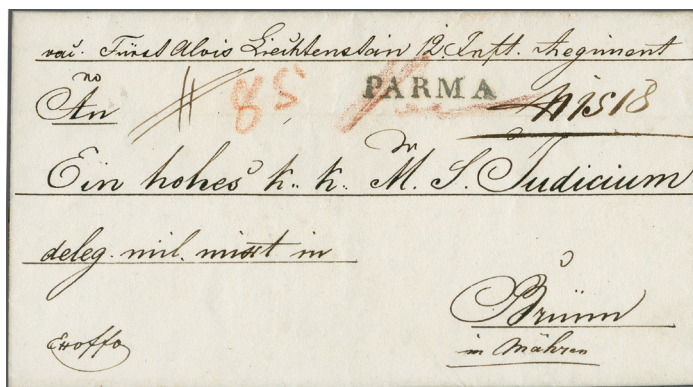 vom Fürst Alois Liechtenstein 12. Inft. Regiment
no
An 58 PARMA N 1518
Ein hohes k. k. M. S. Judicium
deleg. mil. mixt in
Brünn
Exoffo in Mähren